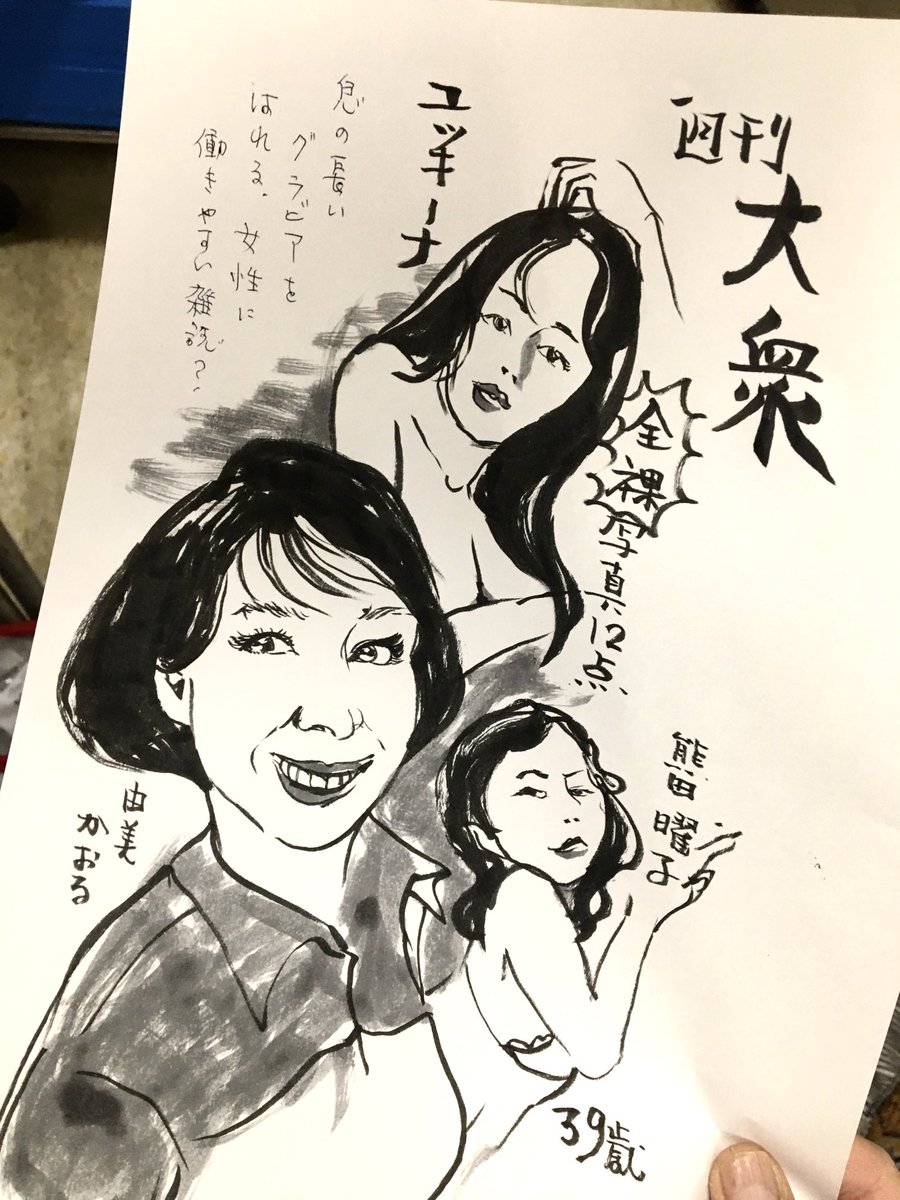 週刊
大衆
ユッキーナ
息の長い
グラビアを
はれる、女性に
働きやすい雑誌?
全裸写真12点
熊田曜子
由美
かおる
39歳